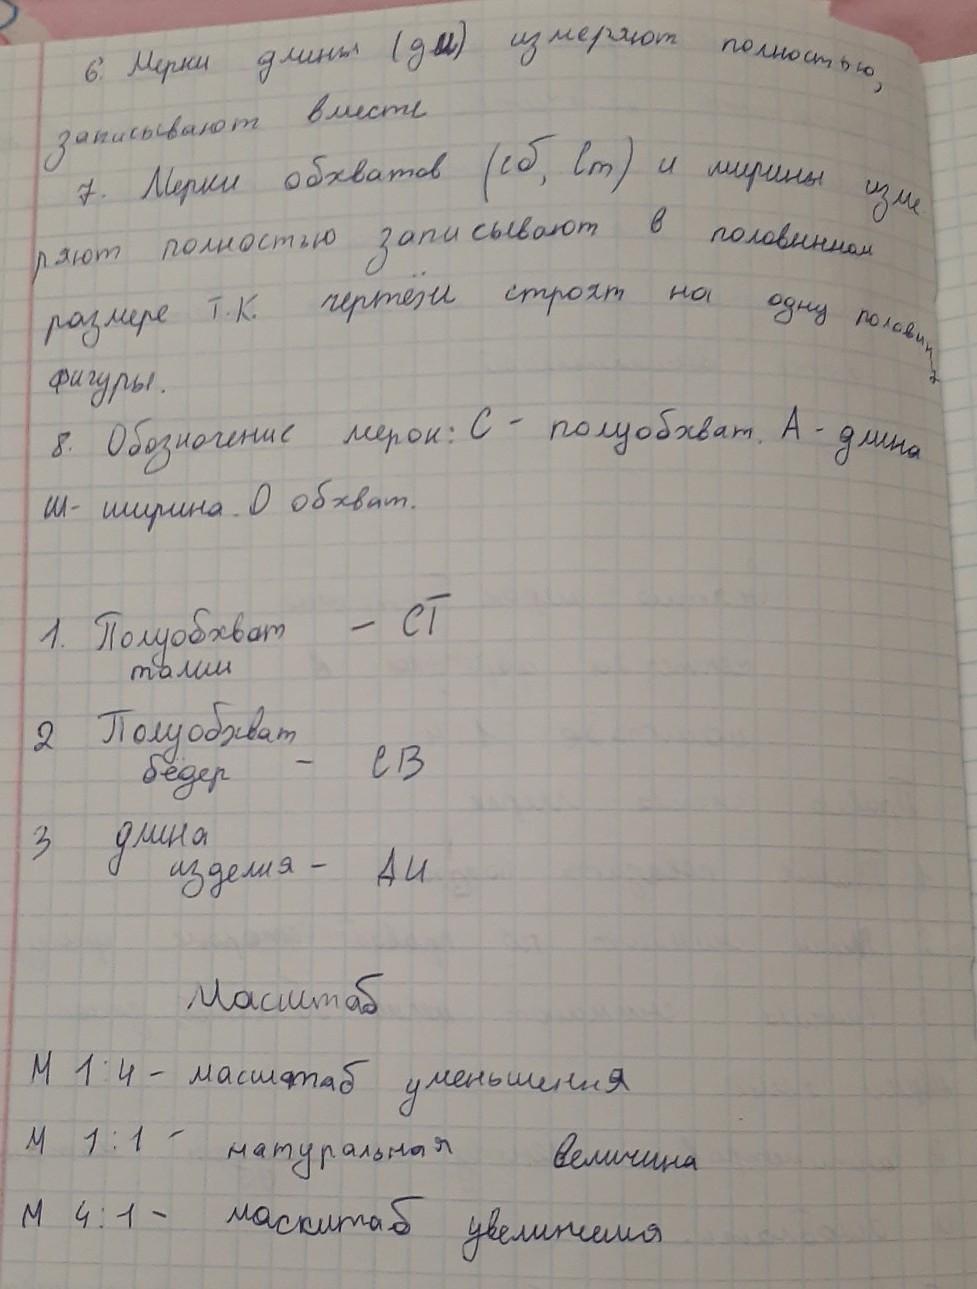 6. Мерки длины (ди) измеряют полностью,
записывают вместе
7. Мерки обхватов (сб, Ст) и ширины изме
ряют полностью записывают в половинном
размере Т.К. чертежи строят на одну половину
фигуры.
8. Обозначение мерок: С - полуобхват. А - длина
Ш- ширина. О обхват.
1. Полуобхват - СТ
талии
2 Полуобхват
бёдер - СВ
3 длина
изделия - ДИ
Масштаб
М 1:4 - масштаб уменьшения
М 1:1 - натуральная величина
М 4:1 - масштаб увеличения